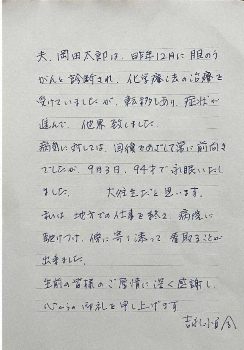 夫、岡田太郎は、昨年12月に胆のう
がんと診断され、化学療法の治療を
受けていましたが、転移しあり、症状が
進んで、他界致しました。
病気に対しては、回復をめざして常に前向き
でしたが、9月3日、94才で永眠いたし
ました。 大往生だと思います。
私は、地方での仕事を終え、病床に
駆けつけ、傍に寄り添って看取ることが
出来ました。
生前の皆様のご厚情に深く感謝し、
心からの御礼を申し上げます
吉永小百合